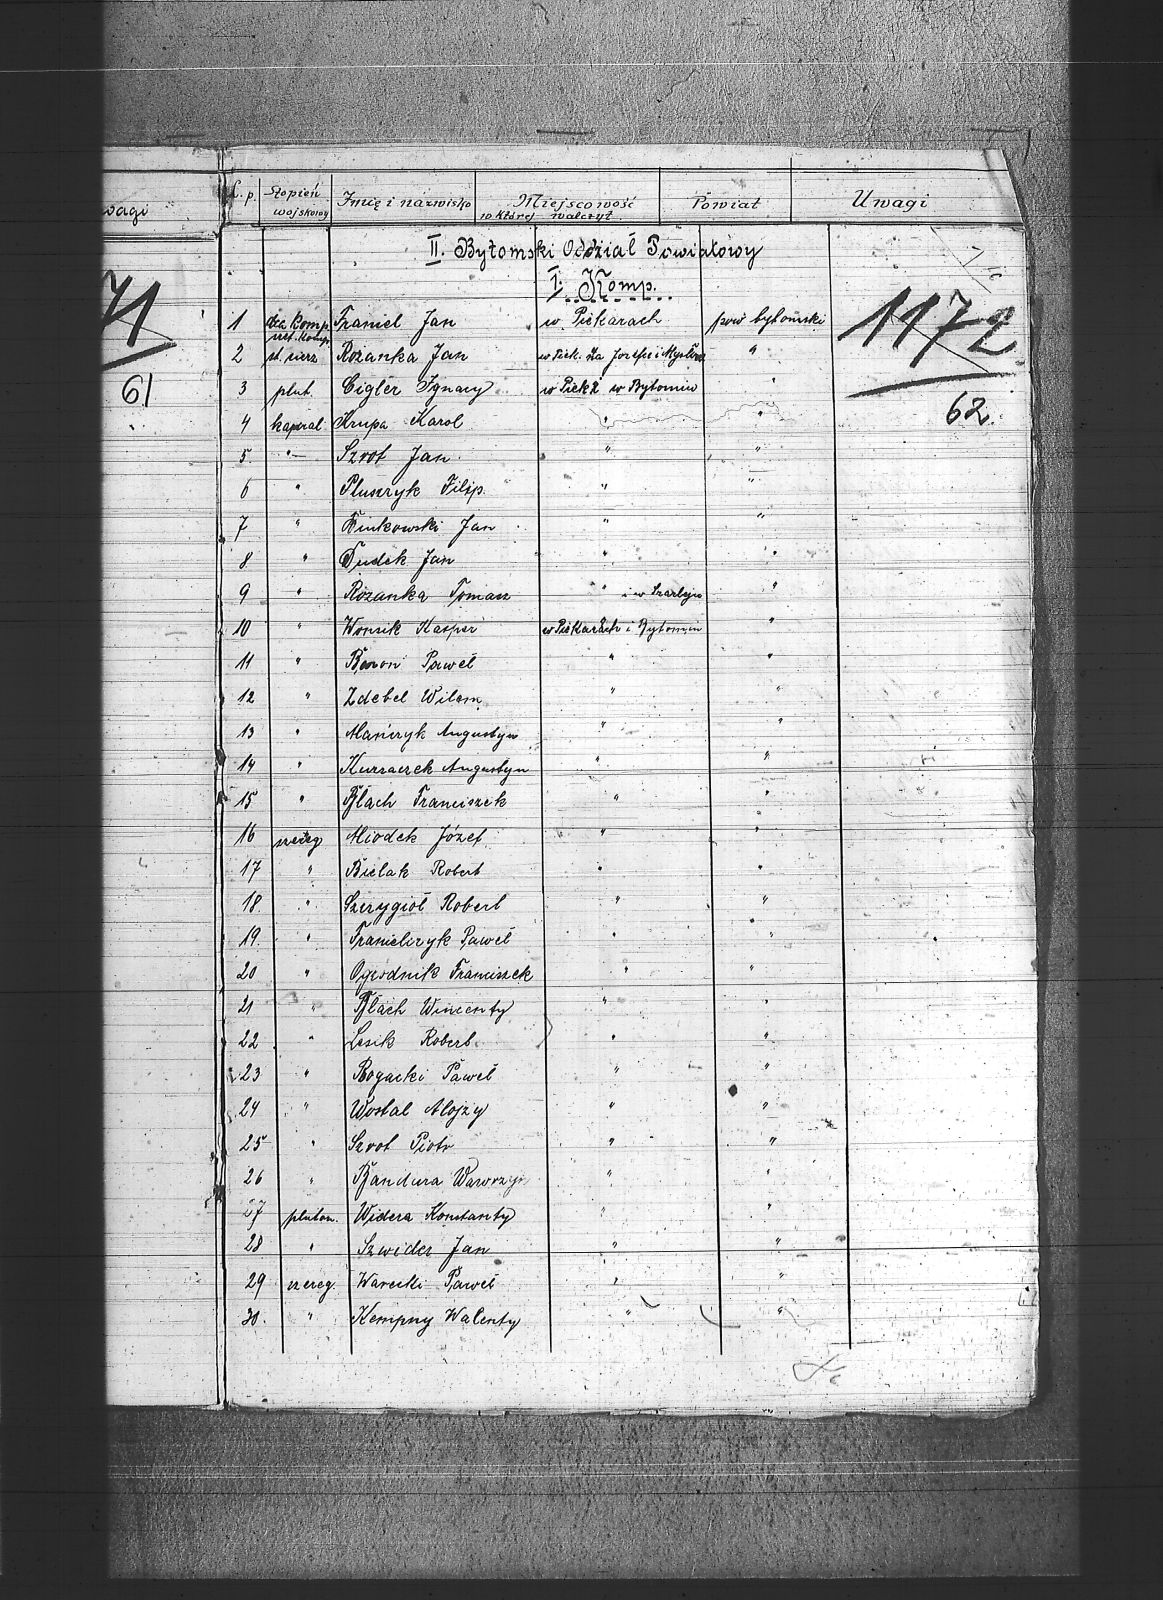 wagi
71
61
L.p. Stopień wojskowy Imię i nazwisko Miejscowość w której walczył Powiat Uwagi
II. Bytomski Oddział Powiatowy
I. Komp.
1172
62.
1 dca komp. Franiel Jan w Piekarach pow bytomski
2 st. sierz Rożanka Jan w Piek. Św Józefa i "
3 plut. Cigler Ignacy w Piek i w Bytomiu "
4 kapral Krupa Karol " "
5. " Szrot Jan " "
6 " Pluszczyk Filip " "
7 " Jan " "
8 " Dudek Jan " "
9 " Rożanka Tomasz " i w Szarleju "
10 " Wonsik Kasper w Piekarach i Bytomiu "
11 " Baron Paweł " "
12 " Zdebel Wilem " "
13 " Mańczyk Augustyn " "
14 " Augustyn " "
15 " Blach Franciszek " "
16 szereg Miodek Józef " "
17 " Bielak Robert " "
18. " Szerygioł Robert " "
19. " Franielczyk Paweł " "
20 " Ogrodnik Franciszek " "
21 " Blach Wincenty " "
22 " Lesik Robert " "
23 " Rogacki Paweł " "
24 " Wostal Alojzy " "
25 " Szrot Piotr " "
26 " Bandura Wawrzyn " "
27 pluton. Widera Konstanty " "
28 " Szwider Jan " "
29 szereg. Warecki Paweł " "
30. " Kempny Walenty " "